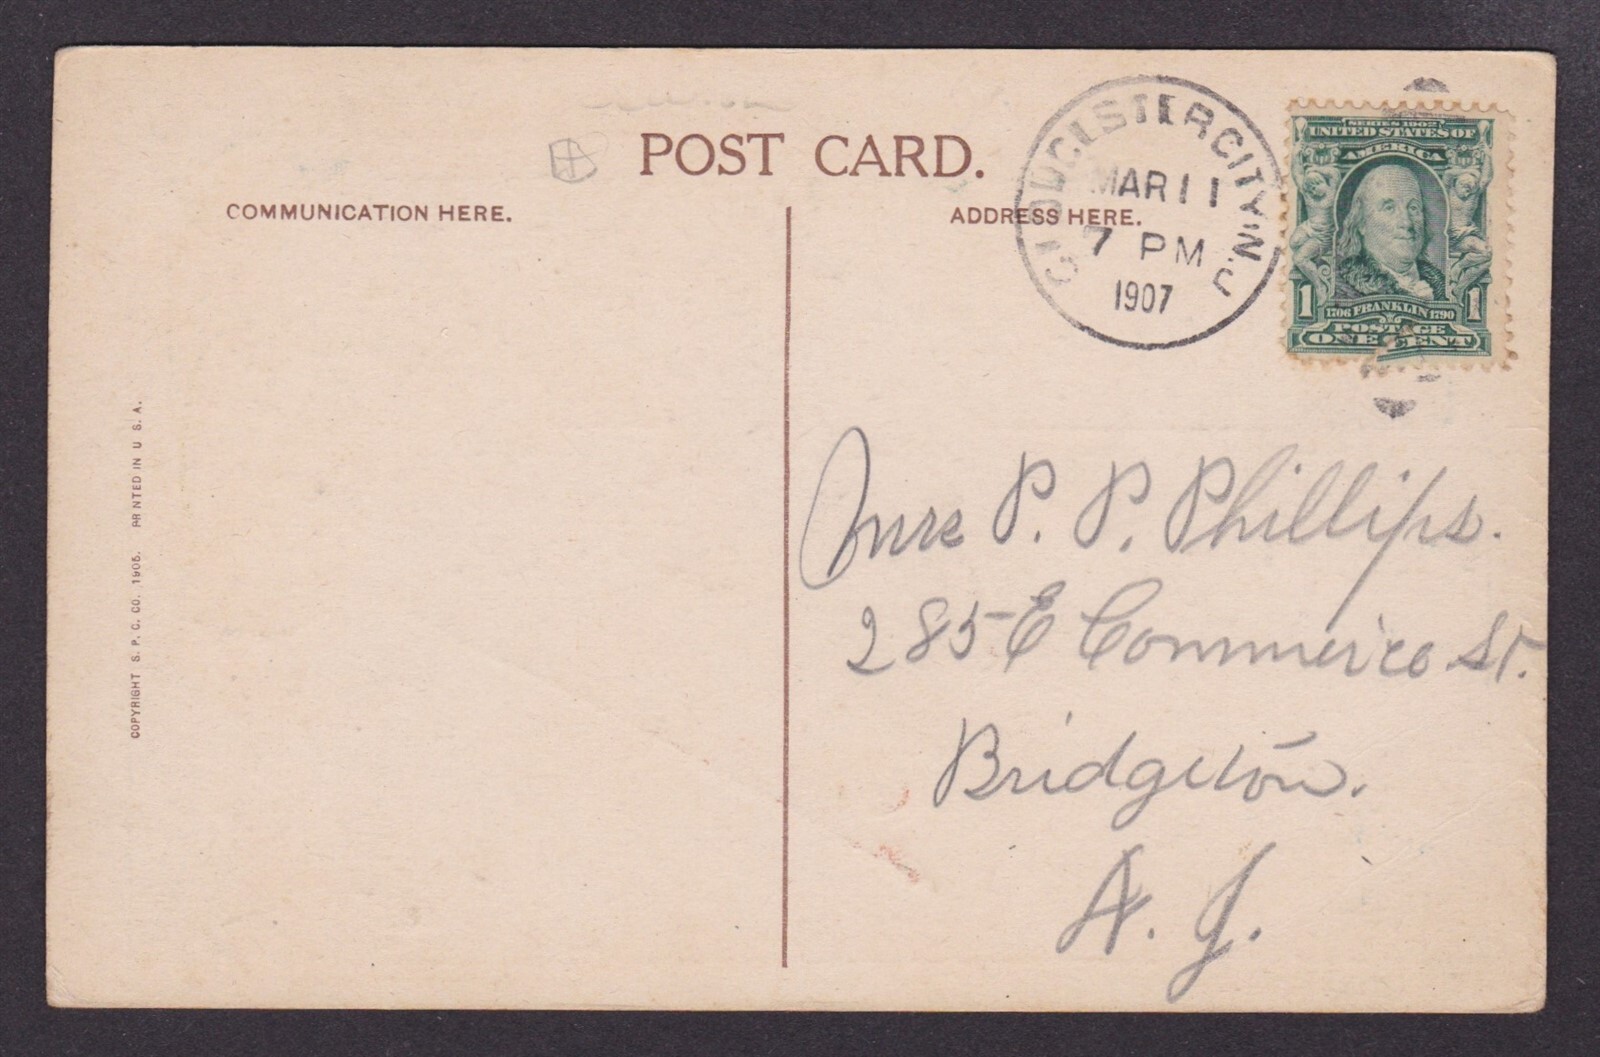 POST CARD.
COMMUNICATION HERE.
ADDRESS HERE.
GLOUCESTER CITY, N.J.
MAR 11
7 PM
1907
SERIES 1902
UNITED STATES OF
AMERICA
1 1706 FRANKLIN 1790 1
POSTAGE
ONE CENT
Mrs P. P. Phillips.
285 E Commerce St.
Bridgeton.
N. J.
COPYRIGHT S. P. C. CO. 1905. PRINTED IN U S. A.